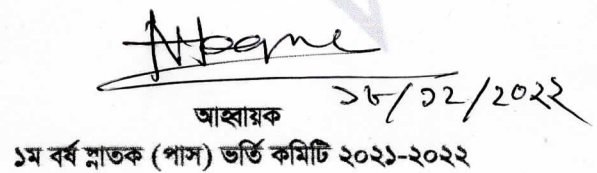 ১৮/১২/২০২২
আহ্বায়ক
১ম বর্ষ স্নাতক (পাস) ভর্তি কমিটি ২০২১-২০২২